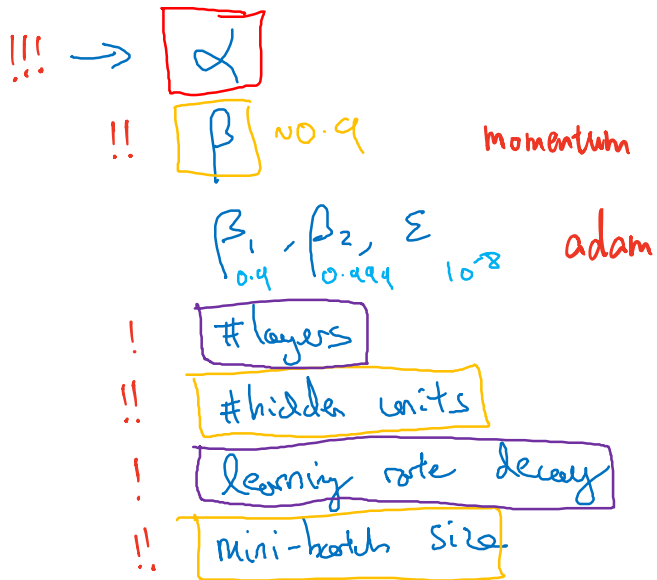 !!! → α
!! β ~0.9 momentum
β1, β2, ε adam
0.9 0.999 10^-8
! #layers
!! #hidden units
! learning rate decay
!! mini-batch size